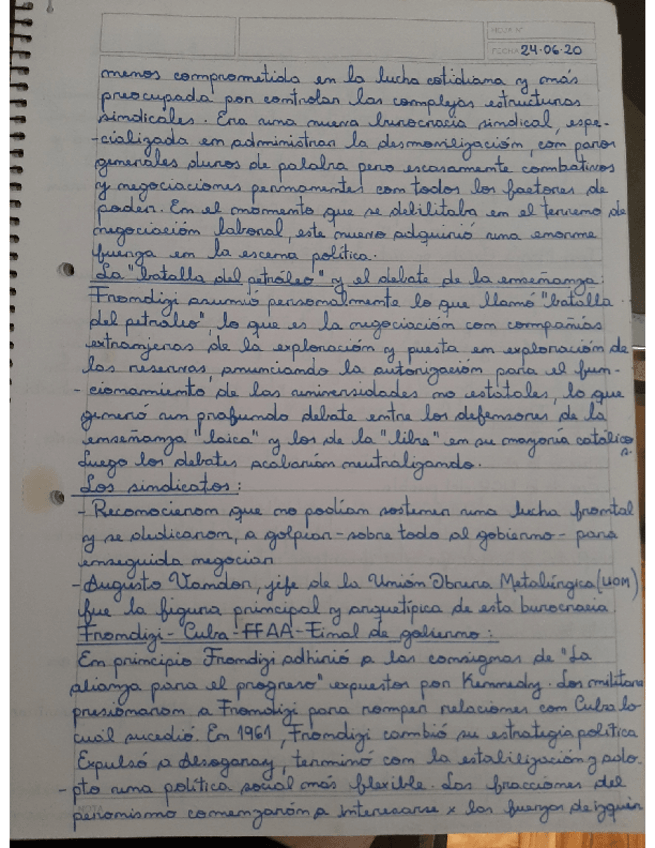 HOJA Nº
FECHA 24-06-20
menos comprometida en la lucha cotidiana y más
preocupada por controlar las complejas estructuras
sindicales. Era una nueva burocracia sindical, espe-
-cializada en administrar la desmovilización, con paros
generales duros de palabra pero escasamente combativos
y negociaciones permanentes con todos los factores de
poder. En el momento que se debilitaba en el terreno de
negociación laboral, este nuevo adquirió una enorme
fuerza en la escena política.
La "batalla del petróleo" y el debate de la enseñanza:
Frondizi asumió personalmente lo que llamó "batalla
del petróleo", lo que es la negociación con compañías
extranjeras de la exploración y puesta en exploración de
las reservas, anunciando la autorización para el fun-
-cionamiento de las universidades no estatales, lo que
generó un profundo debate entre los defensores de la
enseñanza "laica" y los de la "libre" en su mayoría católicos.
Luego los debates acabarían neutralizando.
Los sindicatos:
- Reconocieron que no podían sostener una lucha frontal
y se dedicaron, a golpear - sobre todo al gobierno - para
enseguida negociar
- Augusto Vandor, jefe de la Unión Obrera Metalúrgica (UOM)
fue la figura principal y arquetípica de esta burocracia.
Frondizi - Cuba - FFAA - Final de gobierno:
En principio Frondizi adhirió a las consignas de "La
alianza para el progreso" expuestos por Kennedy. Los militares
presionaron a Frondizi para romper relaciones con Cuba lo
cual sucedió. En 1961, Frondizi cambió su estrategia política
Expulsó a Alsogaray, terminó con la estabilización y ado-
-pto una política social más flexible. Las fracciones del
peronismo comenzaron a interesarse x las fuerzas de izquier